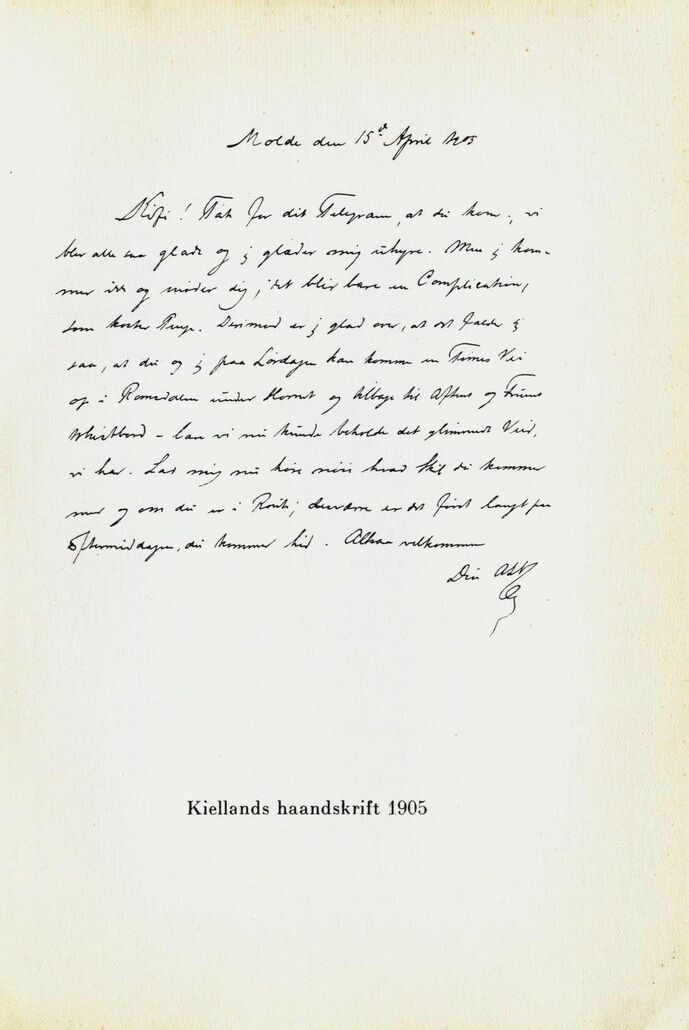 Molde den 15de April 1905
! Tak for dit Telegram, at du kom., vi
blir alle saa glade og j glæder mig uhyre. Men j kom-
mer ikke og møder dig, det blir bare en Complication,
som koster Penge. Derimod er j glad over, at det falder
saa, at du og j paa Lørdagen kan komme en Times Vei
op i Romsdalen under Hornet og tilbage til Aftens og Fruens
Whistbord – bare vi nu kunde beholde det glimrende Veir,
vi har. Lad mig nu høre hvad Skib du kommer
med og om du er i Route; desværre er det først langt paa
Eftermiddagen, du kommer hid. Altsaa velkommen
Din
Kiellands haandskrift 1905